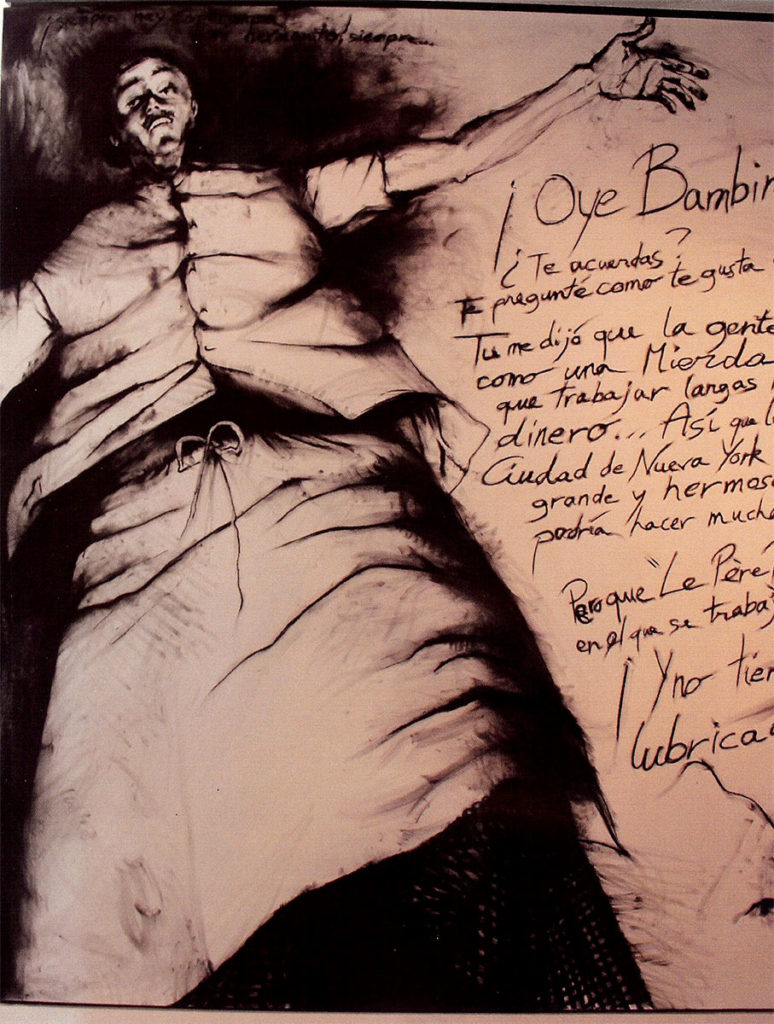 ¡siempre hay
hermanito! siempre...
¡Oye Bambin
¿Te acuerdas?
Te pregunté como te gusta
Tu me dijó que la gente
como una Mierda
que trabajar largas
dinero... Así que
Ciudad de Nueva York
grande y hermosa
podría hacer mucho
Pero que "Le Père"
en el que se trabaj
¡Y no tien
lubrica